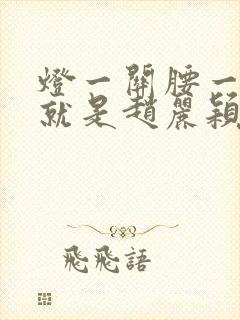 燈一關腰一
就是趙麗穎
飛飛語